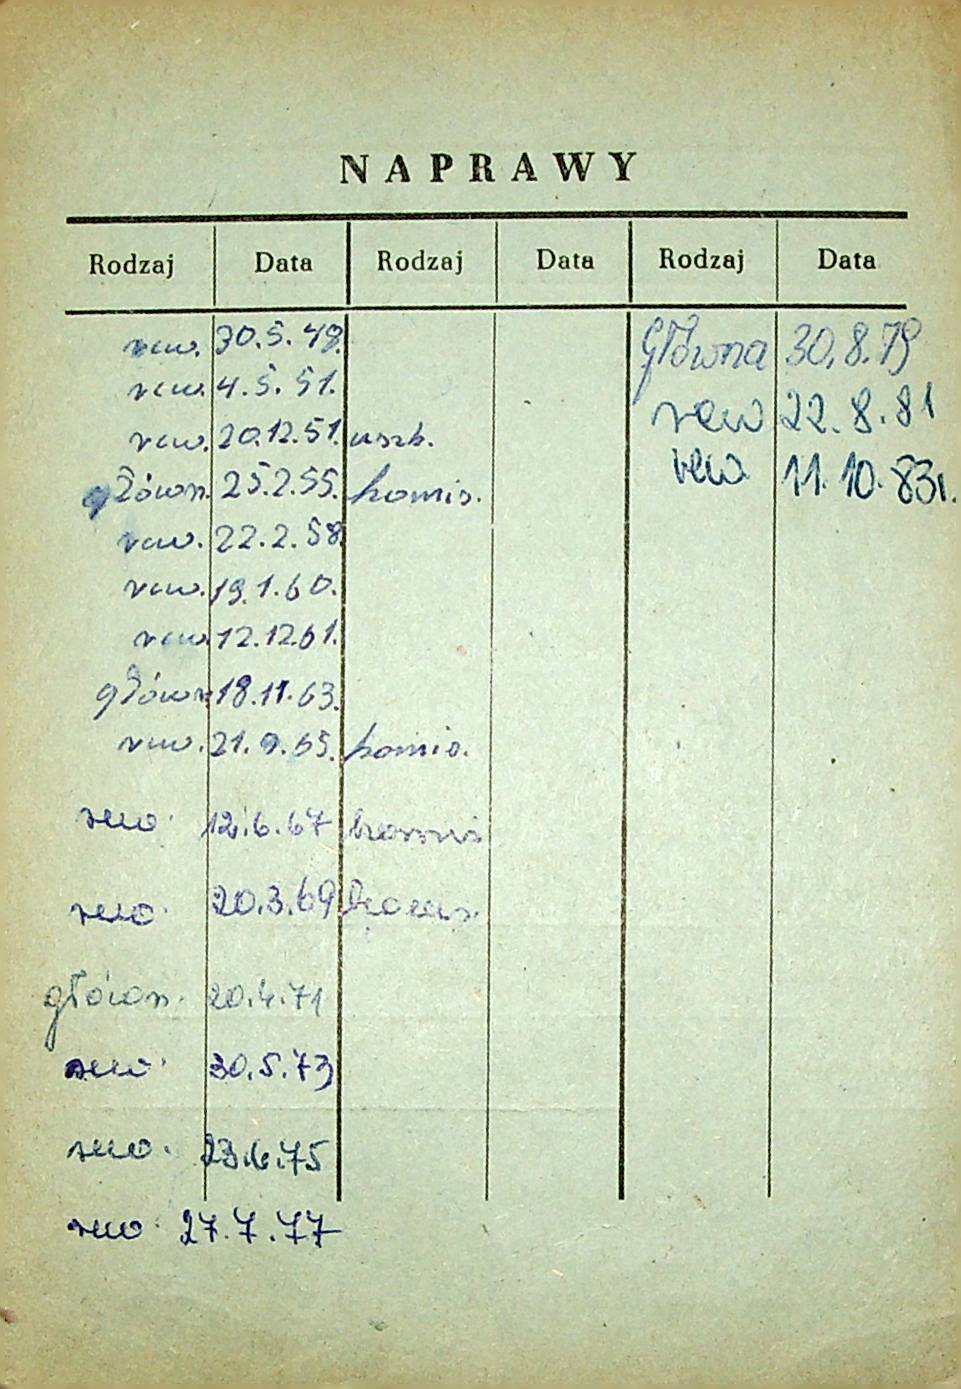 NAPRAWY
Rodzaj Data Rodzaj Data Rodzaj Data
rew. 30.5.49. Główna 30.8.79
rew. 4.5.51. rew 22.8.81
rew. 20.12.51. uszk. rew 11.10.83r.
główn. 25.2.55. komis.
rew. 22.2.58.
rew. 19.1.60.
rew. 12.12.61.
główn 18.11.63.
rew. 21.9.65. komis.
rew. 12.6.67 komis
rew. 20.3.69 komis.
główn. 20.4.71
rew. 30.5.73
rew. 23.6.75
rew. 27.7.77